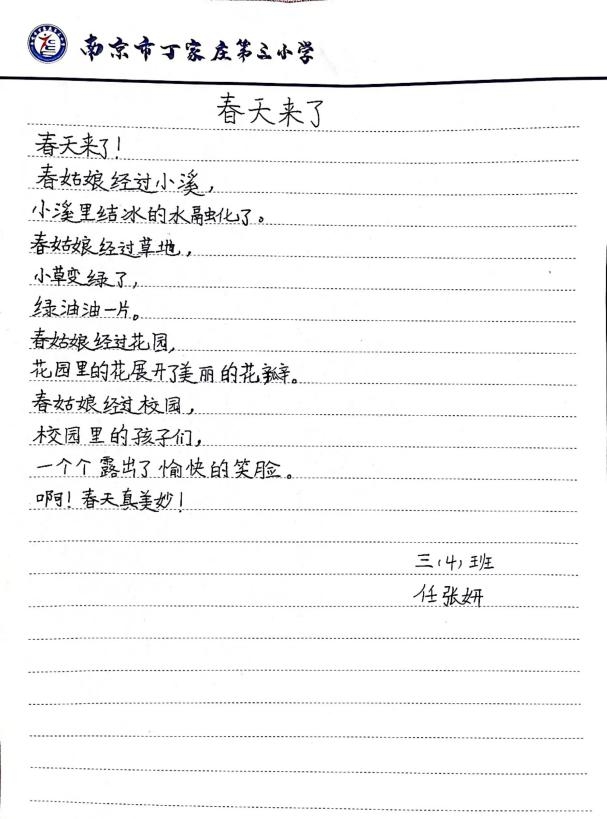 南京市丁家庄第三小学
春天来了
春天来了！
春姑娘经过小溪，
小溪里结冰的水融化了。
春姑娘经过草地，
小草变绿了，
绿油油一片。
春姑娘经过花园，
花园里的花展开了美丽的花瓣。
春姑娘经过校园，
校园里的孩子们，
一个个露出了愉快的笑脸。
啊！春天真美妙！
三（4）班
任张妍